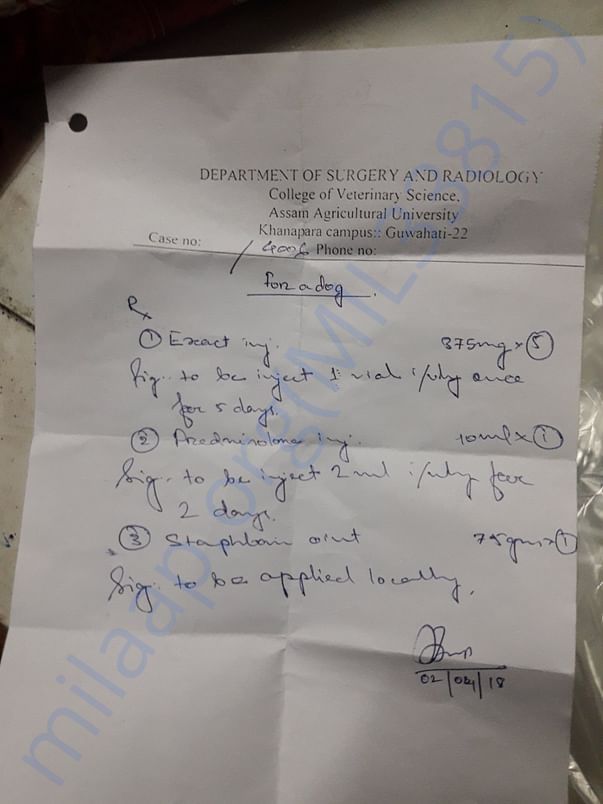 DEPARTMENT OF SURGERY AND RADIOLOGY
College of Veterinary Science,
Assam Agricultural University
Khanapara campus:: Guwahati-22
Case no: Phone no:
For a dog.
Rx
① Exact inj. 375mg × ⑤
Sig. to be inject 1 vial i/m/ly once
for 5 days.
② Prednisolone inj. 10ml × ①
Sig. to be inject 2 ml i/m/ly for
2 days.
③ Staphban oint 75gm × ①
Sig. to be applied locally.
02/04/18
milaap.org(MIL 3815)